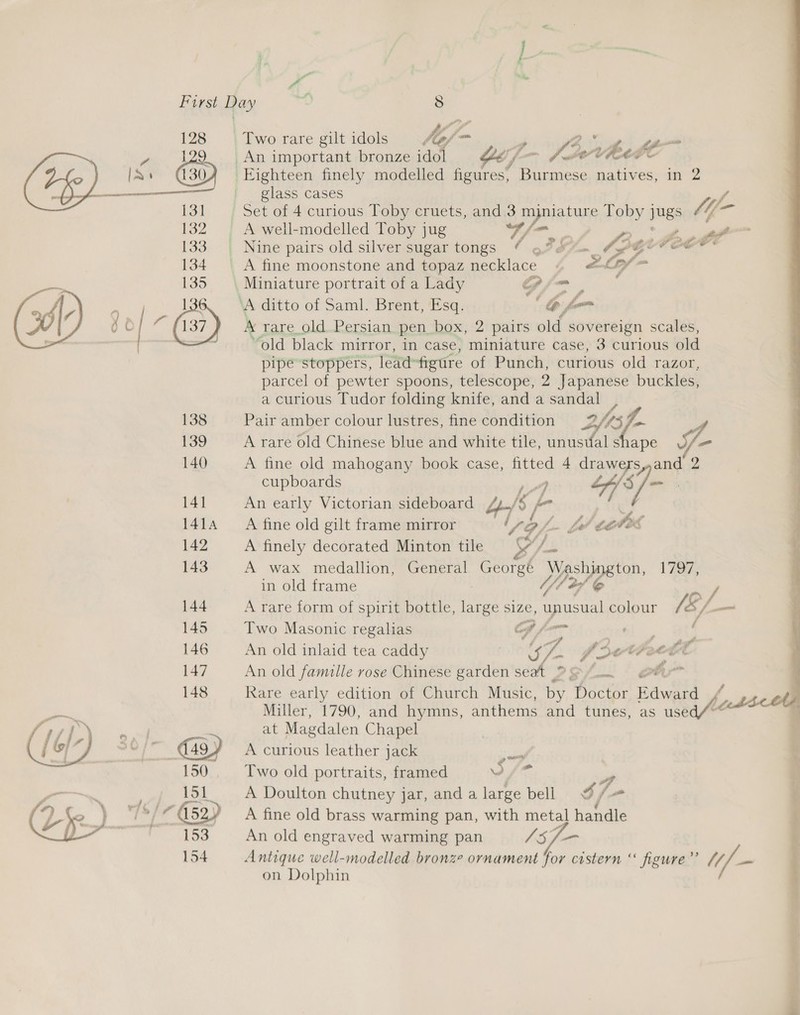 First Day 8
128 Two rare gilt idols
129 An important bronze idol
130 Eighteen finely modelled figures, Burmese natives, in 2
glass cases
131 Set of 4 curious Toby cruets, and 3 miniature Toby jugs
132 A well-modelled Toby jug
133 Nine pairs old silver sugar tongs
134 A fine moonstone and topaz necklace
135 Miniature portrait of a Lady
136 A ditto of Saml. Brent, Esq.
137 A rare old Persian pen box, 2 pairs old sovereign scales,
old black mirror, in case, miniature case, 3 curious old
pipe stoppers, lead figure of Punch, curious old razor,
parcel of pewter spoons, telescope, 2 Japanese buckles,
a curious Tudor folding knife, and a sandal
138 Pair amber colour lustres, fine condition
139 A rare old Chinese blue and white tile, unusual shape
140 A fine old mahogany book case, fitted 4 drawers, and 2
cupboards
141 An early Victorian sideboard
141A A fine old gilt frame mirror
142 A finely decorated Minton tile
143 A wax medallion, General George Washington, 1797,
in old frame
144 A rare form of spirit bottle, large size, unusual colour
145 Two Masonic regalias
146 An old inlaid tea caddy
147 An old famille rose Chinese garden seat
148 Rare early edition of Church Music, by Doctor Edward
Miller, 1790, and hymns, anthems and tunes, as used
at Magdalen Chapel
149 A curious leather jack
150 Two old portraits, framed
151 A Doulton chutney jar, and a large bell
152 A fine old brass warming pan, with metal handle
153 An old engraved warming pan
154 Antique well-modelled bronze ornament for cistern “ figure”
on Dolphin